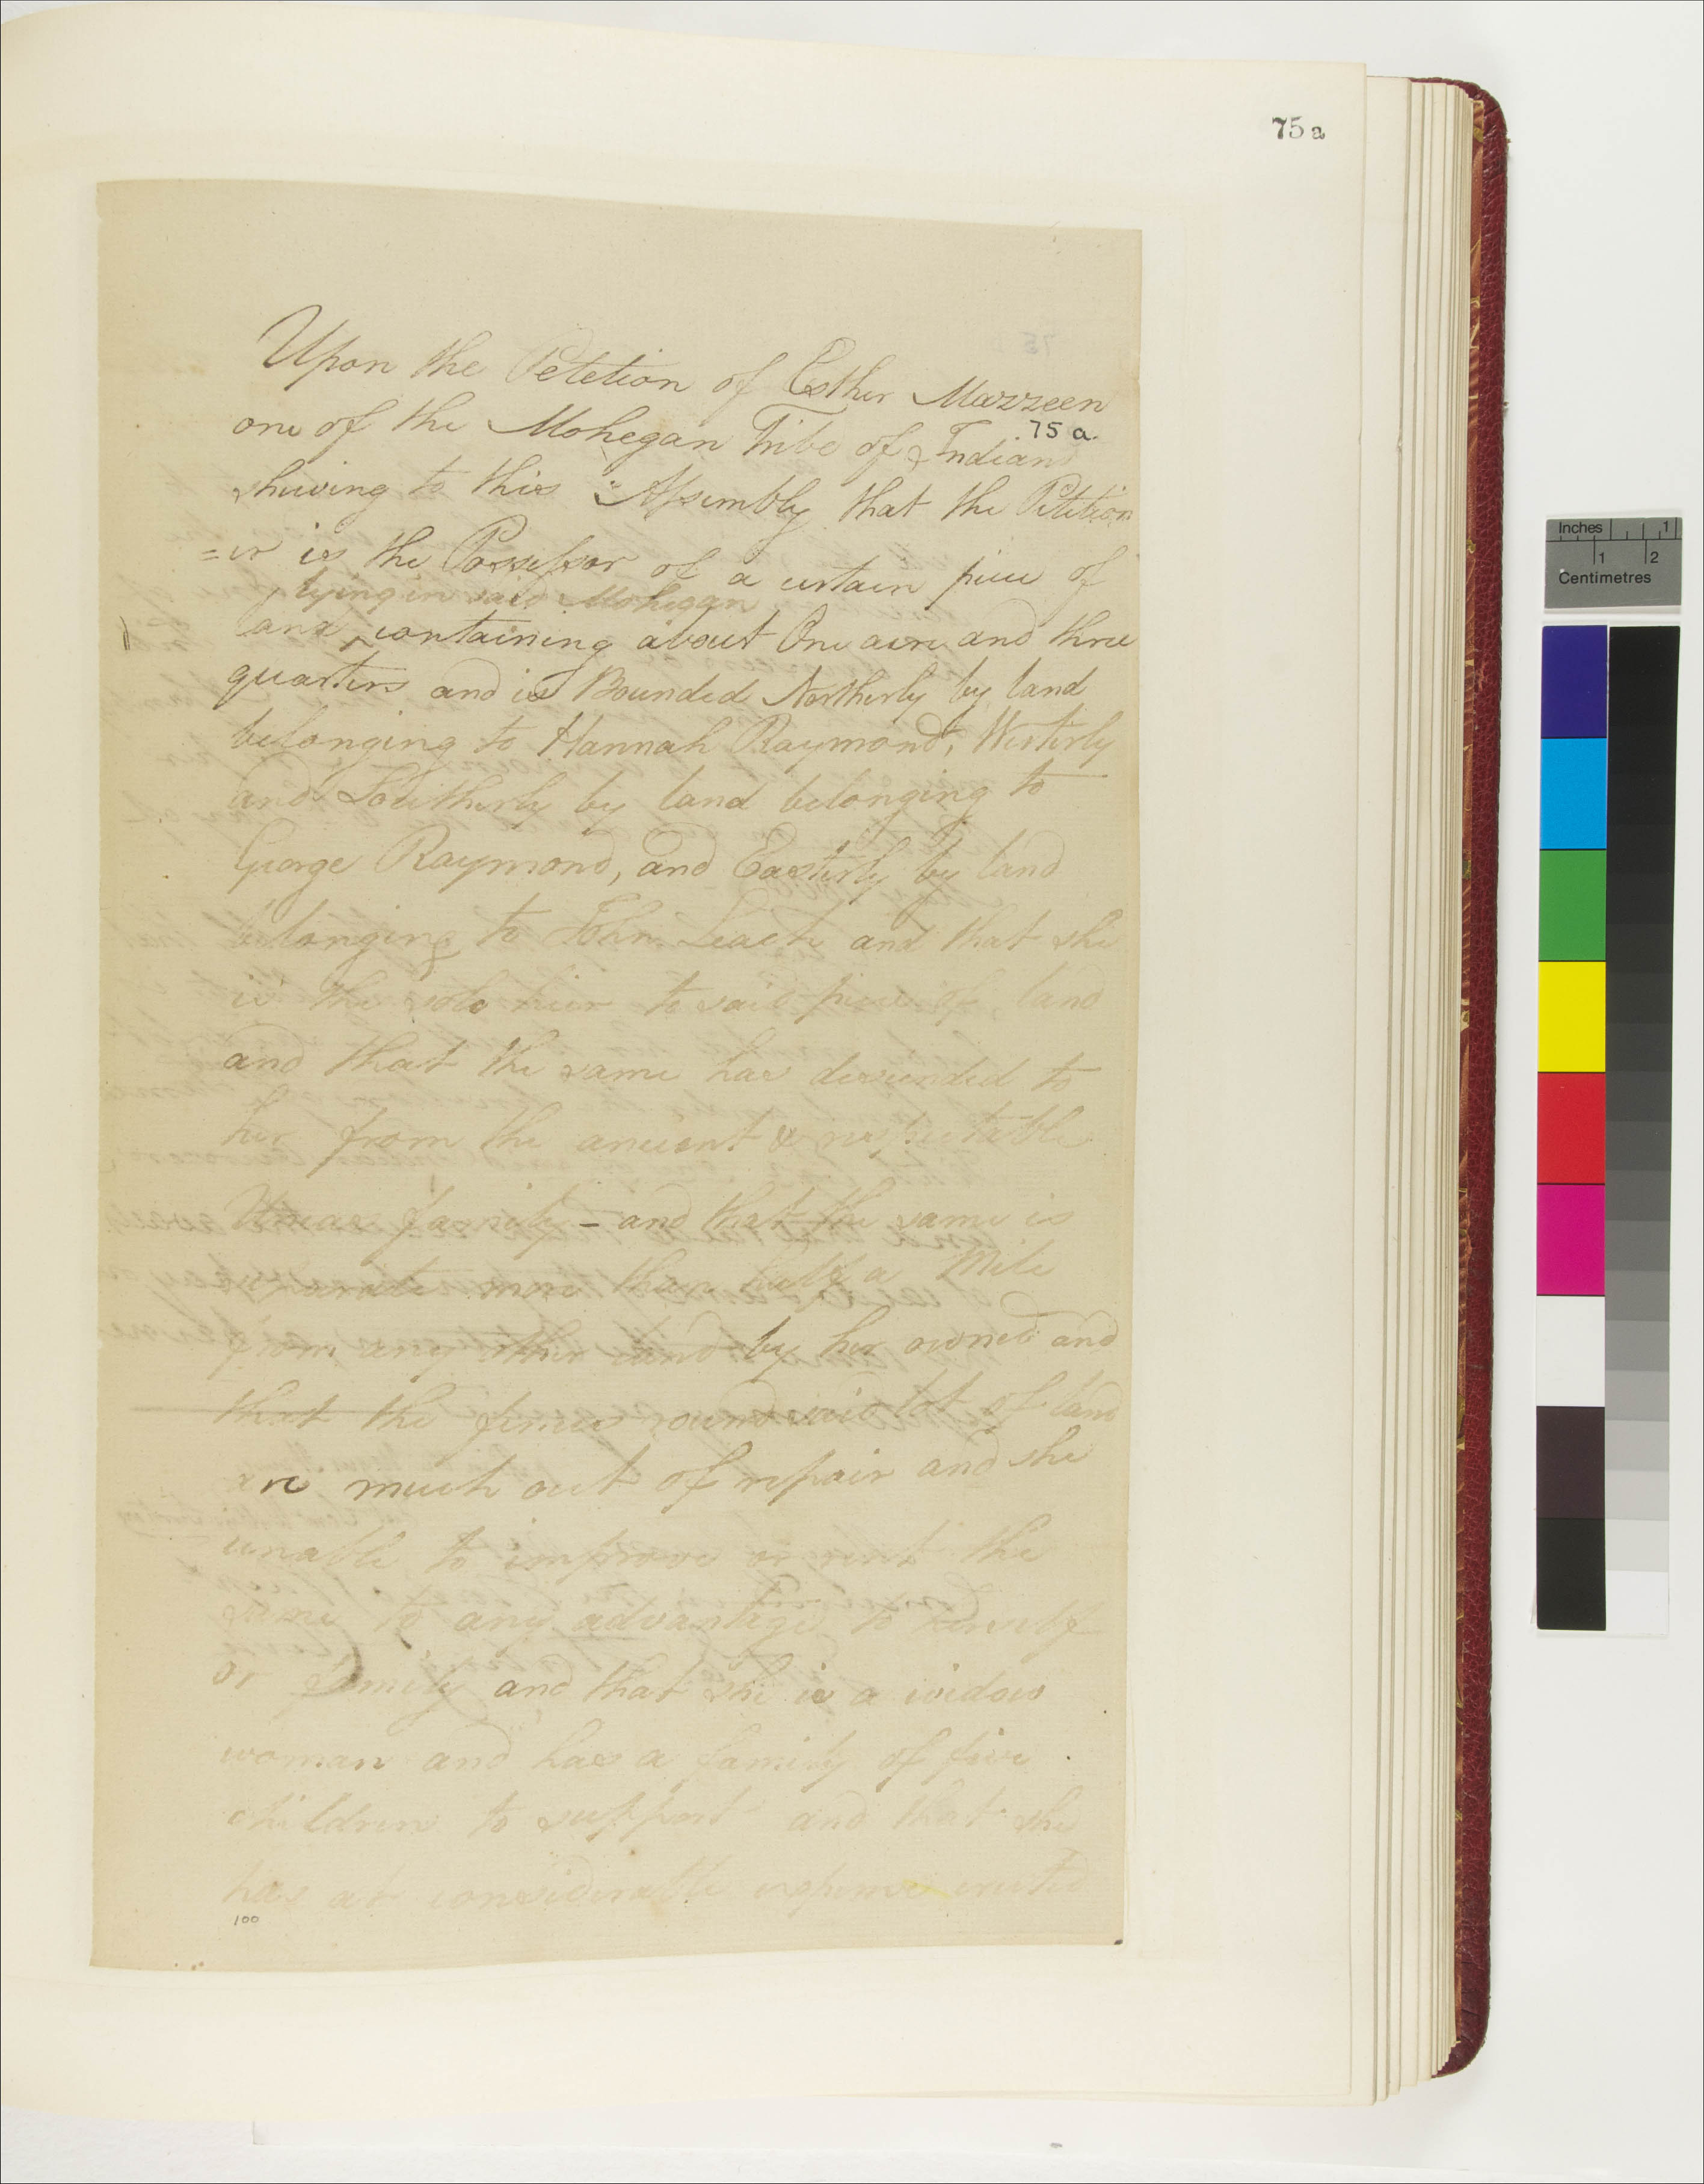 75 a
Upon the Petetion of Esther Mazzeen
75 a.
one of the Mohegan Tribe of Indians
shewing to this Assembly that the Petition
=er is the Possessor of a certain piece of
lying in said Mohegan
land ^ containing about One acre and three
quarters and is Bounded Northerly by land
belonging to Hannah Raymond, Westerly
and Southerly by land belonging to
George Raymond, and Easterly by land
belonging to John Leach and that she
is the sole heir to said piece of land
and that the same has descended to
her from the ancient & respectable
Uncas family - and that the same is
seperate more than half a Mile
from any other land by her owned and
that the fences round said lot of land
are much out of repair and she
unable to improve or rent the
same to any advantage to herself
or family and that she is a widow
woman and has a family of five
children to support and that she
has at considerable expense erected
100
Inches 1
1 2
Centimetres